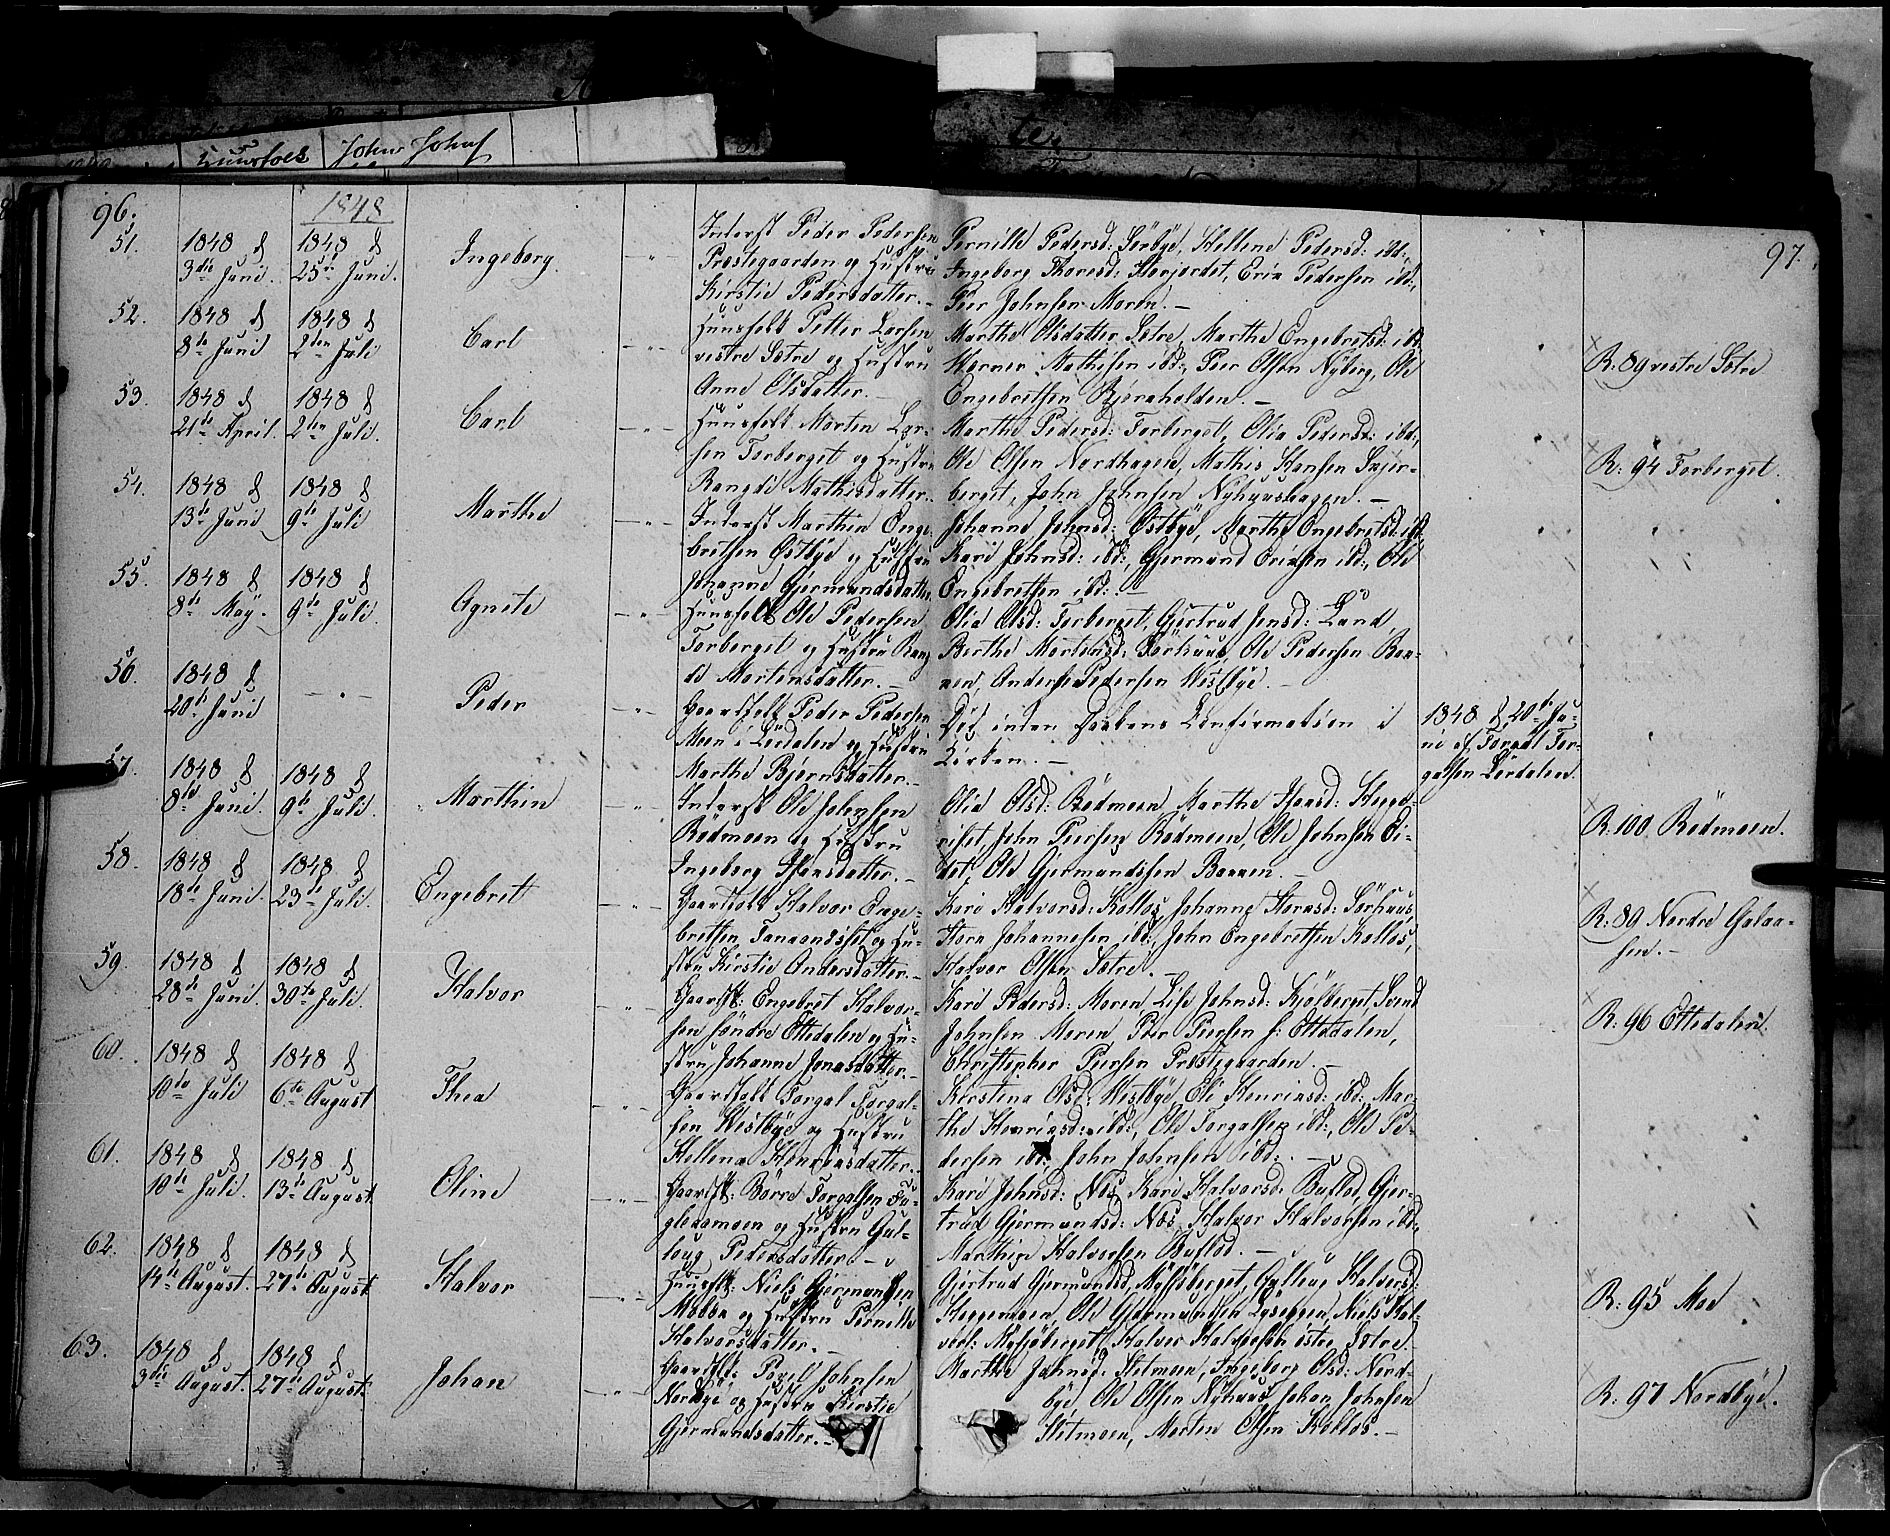 Huusfolk John Johns
96.
1848
97.
51.
1848 d
3die Juni.
1848 d
25de Juni.
Ingeborg.
Inderst Peder Pedersen
Præstegaarden og Hustru
Kirstie Pedersdatter.-
Pernille Pedersd: Sörbye, Hellene Pedersd: ibd:,
Ingeborg Thoresd: Storjordet, Eric Pedersen ibd:,
Peer Johnsen Moren.-
52.
1848 d
8de Juni
1848 d
2den Juli
Carl
Huusfolk Petter Larsen
vestre Sætre og Hustru
Anne Olsdatter.-
Marthe Olsdatter Sætre, Marthe Engebretsd: ibd
Werner Mathisen ibd:, Peer Olsen Nyberg, Ole
Engebretsen Bjørnholden.-
R: 89 vestre Sætre
53.
1848 d
21de April.
1848 d
2den Juli.
Carl
Huusfolk Morten Lar-
sen Torberget og Hustru
Rangdi Mathisdatter.
Marthe Pedersd: Torberget, Olia Pedersd: ibd:,
Ole Olsen Nordhagen, Mathis Hansen Snjer-
berget, John Johnsen Nyhuushagen.-
R: 94 Torberget.
54.
1848 d
13de Juni
1848 d
9de Juli
Marthe
Inderst Marthin Enge
bretsen Østbye og Hustru
Johanne Gjermundsdatter
Johanne Johnsd: Østbye, Marthe Engebretsd: ibd
Kari Johnsd: ibd:, Gjermund Ericsen ibd:, Ole
Engebretsen ibd:.-
55.
1848 d
8de May.
1848 d
9de Juli.
Agnete
Huusfolk Ole Pedersen
Torberget og Hustru Rang
di Mortensdatter.-
Olia Olsd: Torberget, Gjertrud Jensd: Lund
Berthe Mortensd: Sörhuus, Ole Pedersen Baa-
nen, Anders Pedersen Westbye.-
56.
1848 d
20de Juni
Peder
Gaardfolk Peder Pedersen
Moen i Lördalen og Hustru
Marthe Bjørnsdatter.-
Død inden Daabens Confirmation i
Kirken.-
1848 d 20de Ju-
ni af Torgal Tor-
galsen Lördalen.
57.
1848 d
8de Juni.
1848 d
9de Juli.
Marthin
Inderst Ole Johnsen
Rödmoen og Hustru
Ingeborg Ifarsdatter.-
Olia Olsd: Rödmoen, Marthe Ifarsd: Hegge-
riset, John Peersen Rödmoen, Ole Johnsen Ei-
det, Ole Gjermundsen Baanen.-
R: 100 Rödmoen.
58.
1848 d
18de Juni.
1848 d
23de Juli.
Engebret
Gaardfolk Halvor Enge-
bretsen Tanaandsset og Hu-
stru Kirstie Andersdatter.-
Kari Halvorsd: Kollos, Johanne Storsd: Sörhuus,
Stora Johannesen ibd:, John Engebretsen Kollos,
Halvor Olsen Sætre.
R: 89 Nordre Galaa-
sen.-
59.
1848 d
28de Juni.
1848 d
30te Juli.
Halvor
Gaardflk: Engebret Halvor-
sen söndre Ottedalen og Hu-
stru Johanne Jonasdatter.-
Kari Pedersd: Moren, Lise Johnsd: Kjölberget, Svend
Johnsen Moren, Peer Peersen s: Ottedalen,
Christopher Peersen Præstegaarden.-
R: 96 Ottedalen.
60.
1848 d
10de Juli
1848 d
6te August
Thea
Gaardfolk Torgal Torgal-
sen Westbye og Hustru
Hellena Henricsdatter.-
Kerstina Olsd: Westbye, Oli Henricsd: ibd: Mar-
the Henricsd: ibd:, Ole Torgalsen ibd:, Ole Pe-
dersen ibd:, John Johnsen ibd:.-
61.
1848 d
10de Juli.
1848 d
13de August.
Oline
Gaardflk: Börre Torgalsen Fu-
gleaamoen og Hustru Gul-
loug Pedersdatter.-
Kari Johnsd: Næs, Kari Halvorsd: Bufled, Gjer-
trud Gjermundsd: Næs, Halvor Halvorsen ibd:,
Marthin Halvorsen Bufled.-
62.
1848 d
14de August.
1848 d
27de August
Halvor
Huusflk: Niels Gjermundsen
Mobba og Hustru Pernille
Halvorsdatter.-
Gjertrud Gjermundsd, Galleug Halvorsd:
Heggemoen, Ole Gjermundsen, Niels Hal-
vors:, Halvor Halvorsen östre Sætre.
R: 95 Moe
63.
1848 d
3die August.
1848 d
27de August.
Johan
Gaardflk: Povel Johnsen
Nordbye og Hustru Kirstie
Gjermundsdatter.-
Marthe Johnsd: Stetmoen, Ingeborg Olsd: Nord-
bye, Ole Olsen Nyhuus, Johan Johnsen
Stetmoen, Morten Olsen Kollos.-
R: 97 Nordbye.